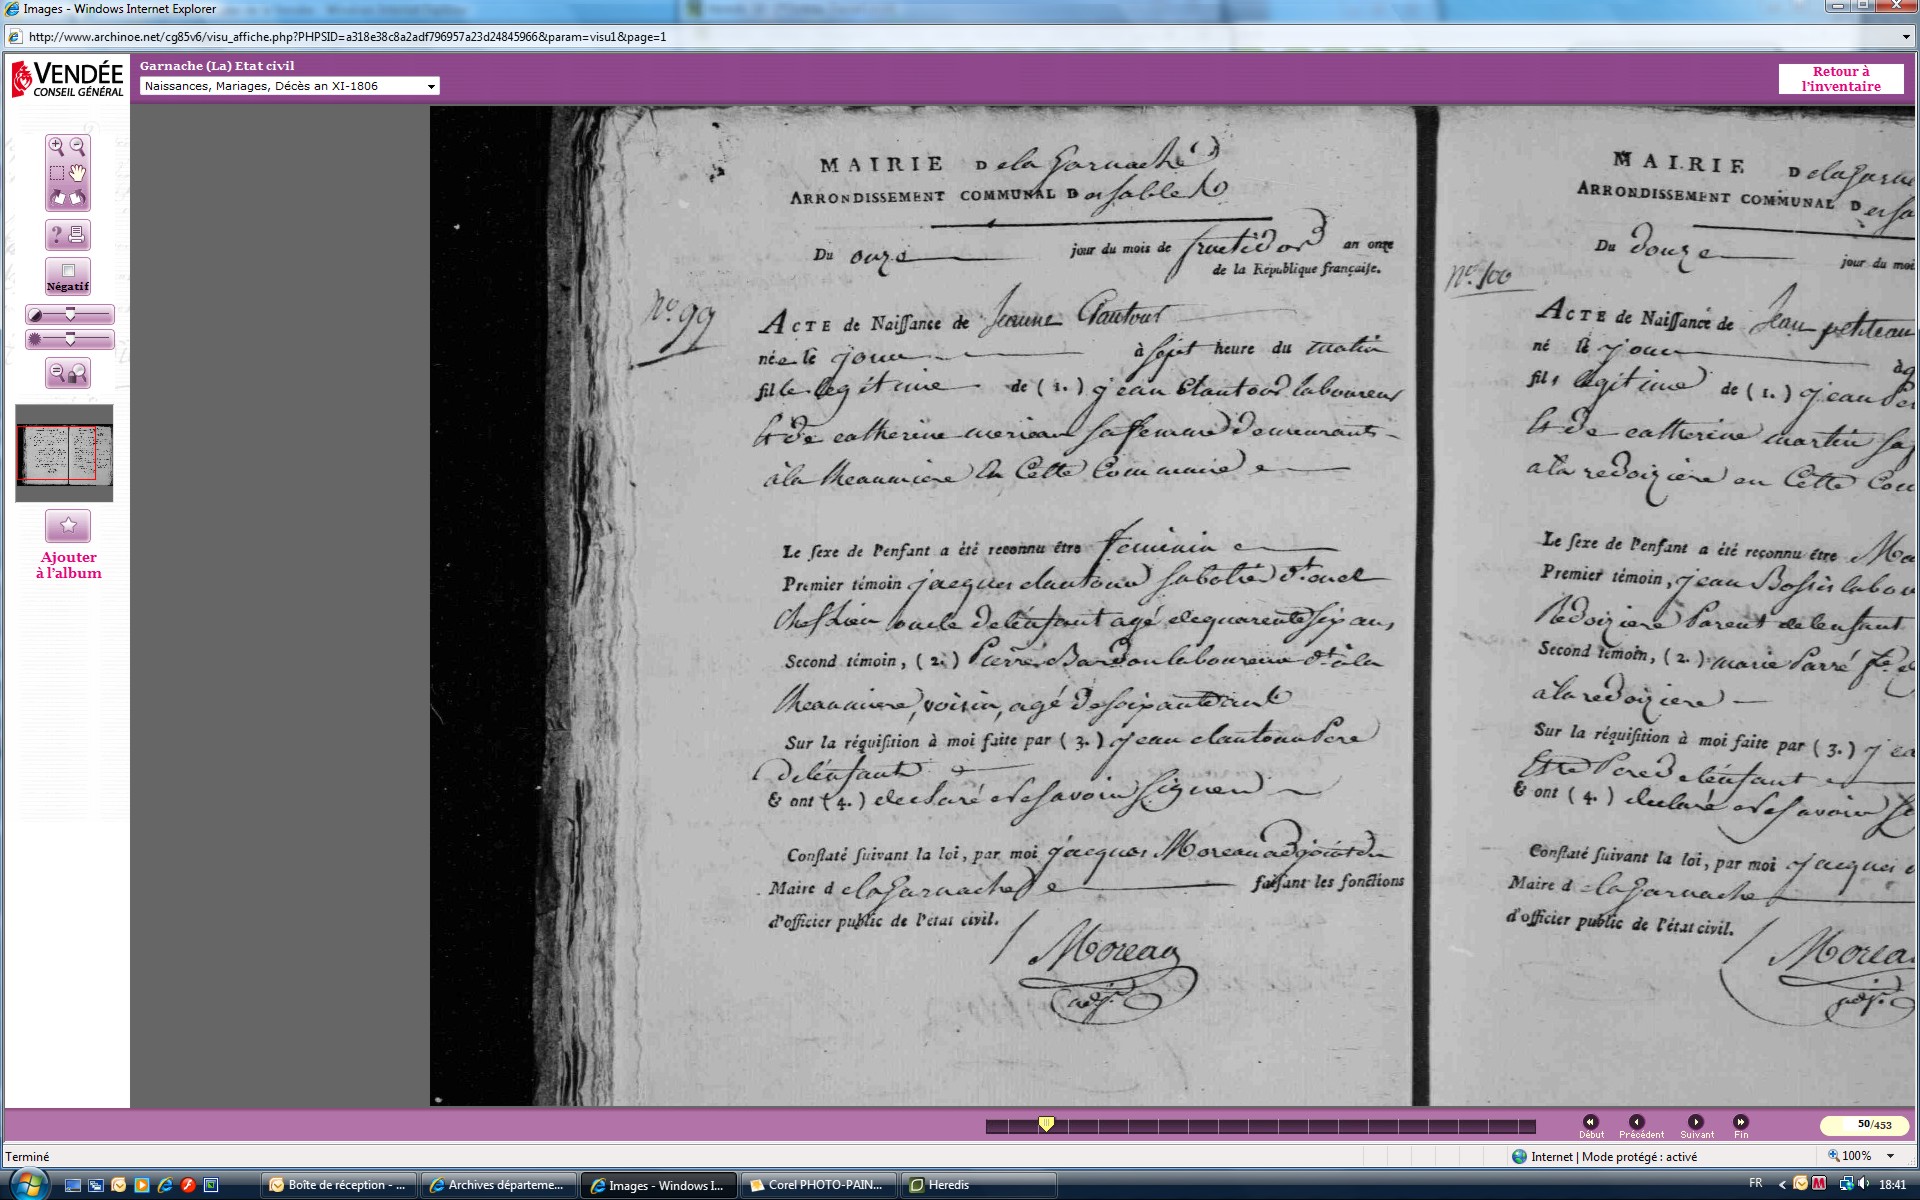 Images - Windows Internet Explorer
http://www.archinoe.net/cg85v6/visu_affiche.php?PHPSID=a318e38c8a2adf796957a23d24845966&param=visu1&page=1
VENDÉE
CONSEIL GÉNÉRAL
Garnache (La) Etat civil
Naissances, Mariages, Décès an XI-1806
Retour à
l'inventaire
Négatif
Ajouter
à l'album
MAIRIE De la Garnache
ARRONDISSEMENT COMMUNAL Des sables
Du onze jour du mois de fructidor an onze
de la République française.
No. 99
ACTE de Naissance de Jeanne Clautour
née le jour à sept heure du matin
fille legitime de (1.) jean Clautour laboureur
Et De catherine merieau sa femme Demeurants
à la Meaumiere En Cette Commune
Le sexe de l'enfant a été reconnu être feminin
Premier témoin jacques clautour sabotié dt. au
Chef Lieu oncle de l'enfant agé de quarente six ans
Second témoin, (2.) Pierre laboureur dt. à la
Meaumiere, voisin, agé De soixante ans
Sur la réquisition à moi faite par (3.) jean clautour Pere
de l'enfant
& ont (4.) declaré ne savoir signer
Constaté suivant la loi, par moi jacques Moreau adjoint du
Maire de la Garnache faisant les fonctions
d'officier public de l'état civil.
Moreau
adj.
MAIRIE De la Garnac
ARRONDISSEMENT COMMUNAL Des sa
Du Douze jour du moi
No. 100
ACTE de Naissance de Jean petiteau
né le jour à
fils legitime de (1.) jean Pe
Et De catherine martin sa f
à la redoiziere en Cette Com
Le sexe de l'enfant a été reconnu être Ma
Premier témoin, jean Bossis labou
Redoiziere Parent de l'enfant
Second témoin, (2.) marie Parré fe.
à la redoiziere
Sur la réquisition à moi faite par (3.) jea
Pere De l'enfant
& ont (4.) declaré ne savoir si
Constaté suivant la loi, par moi jacques
Maire de la Garnache
d'officier public de l'état civil.
Morea
adj.
Début Précédent Suivant Fin
50/453
Terminé
Internet | Mode protégé : activé
100%
Boîte de réception - ...
Archives départeme...
Images - Windows I...
Corel PHOTO-PAIN...
Heredis
FR
18:41